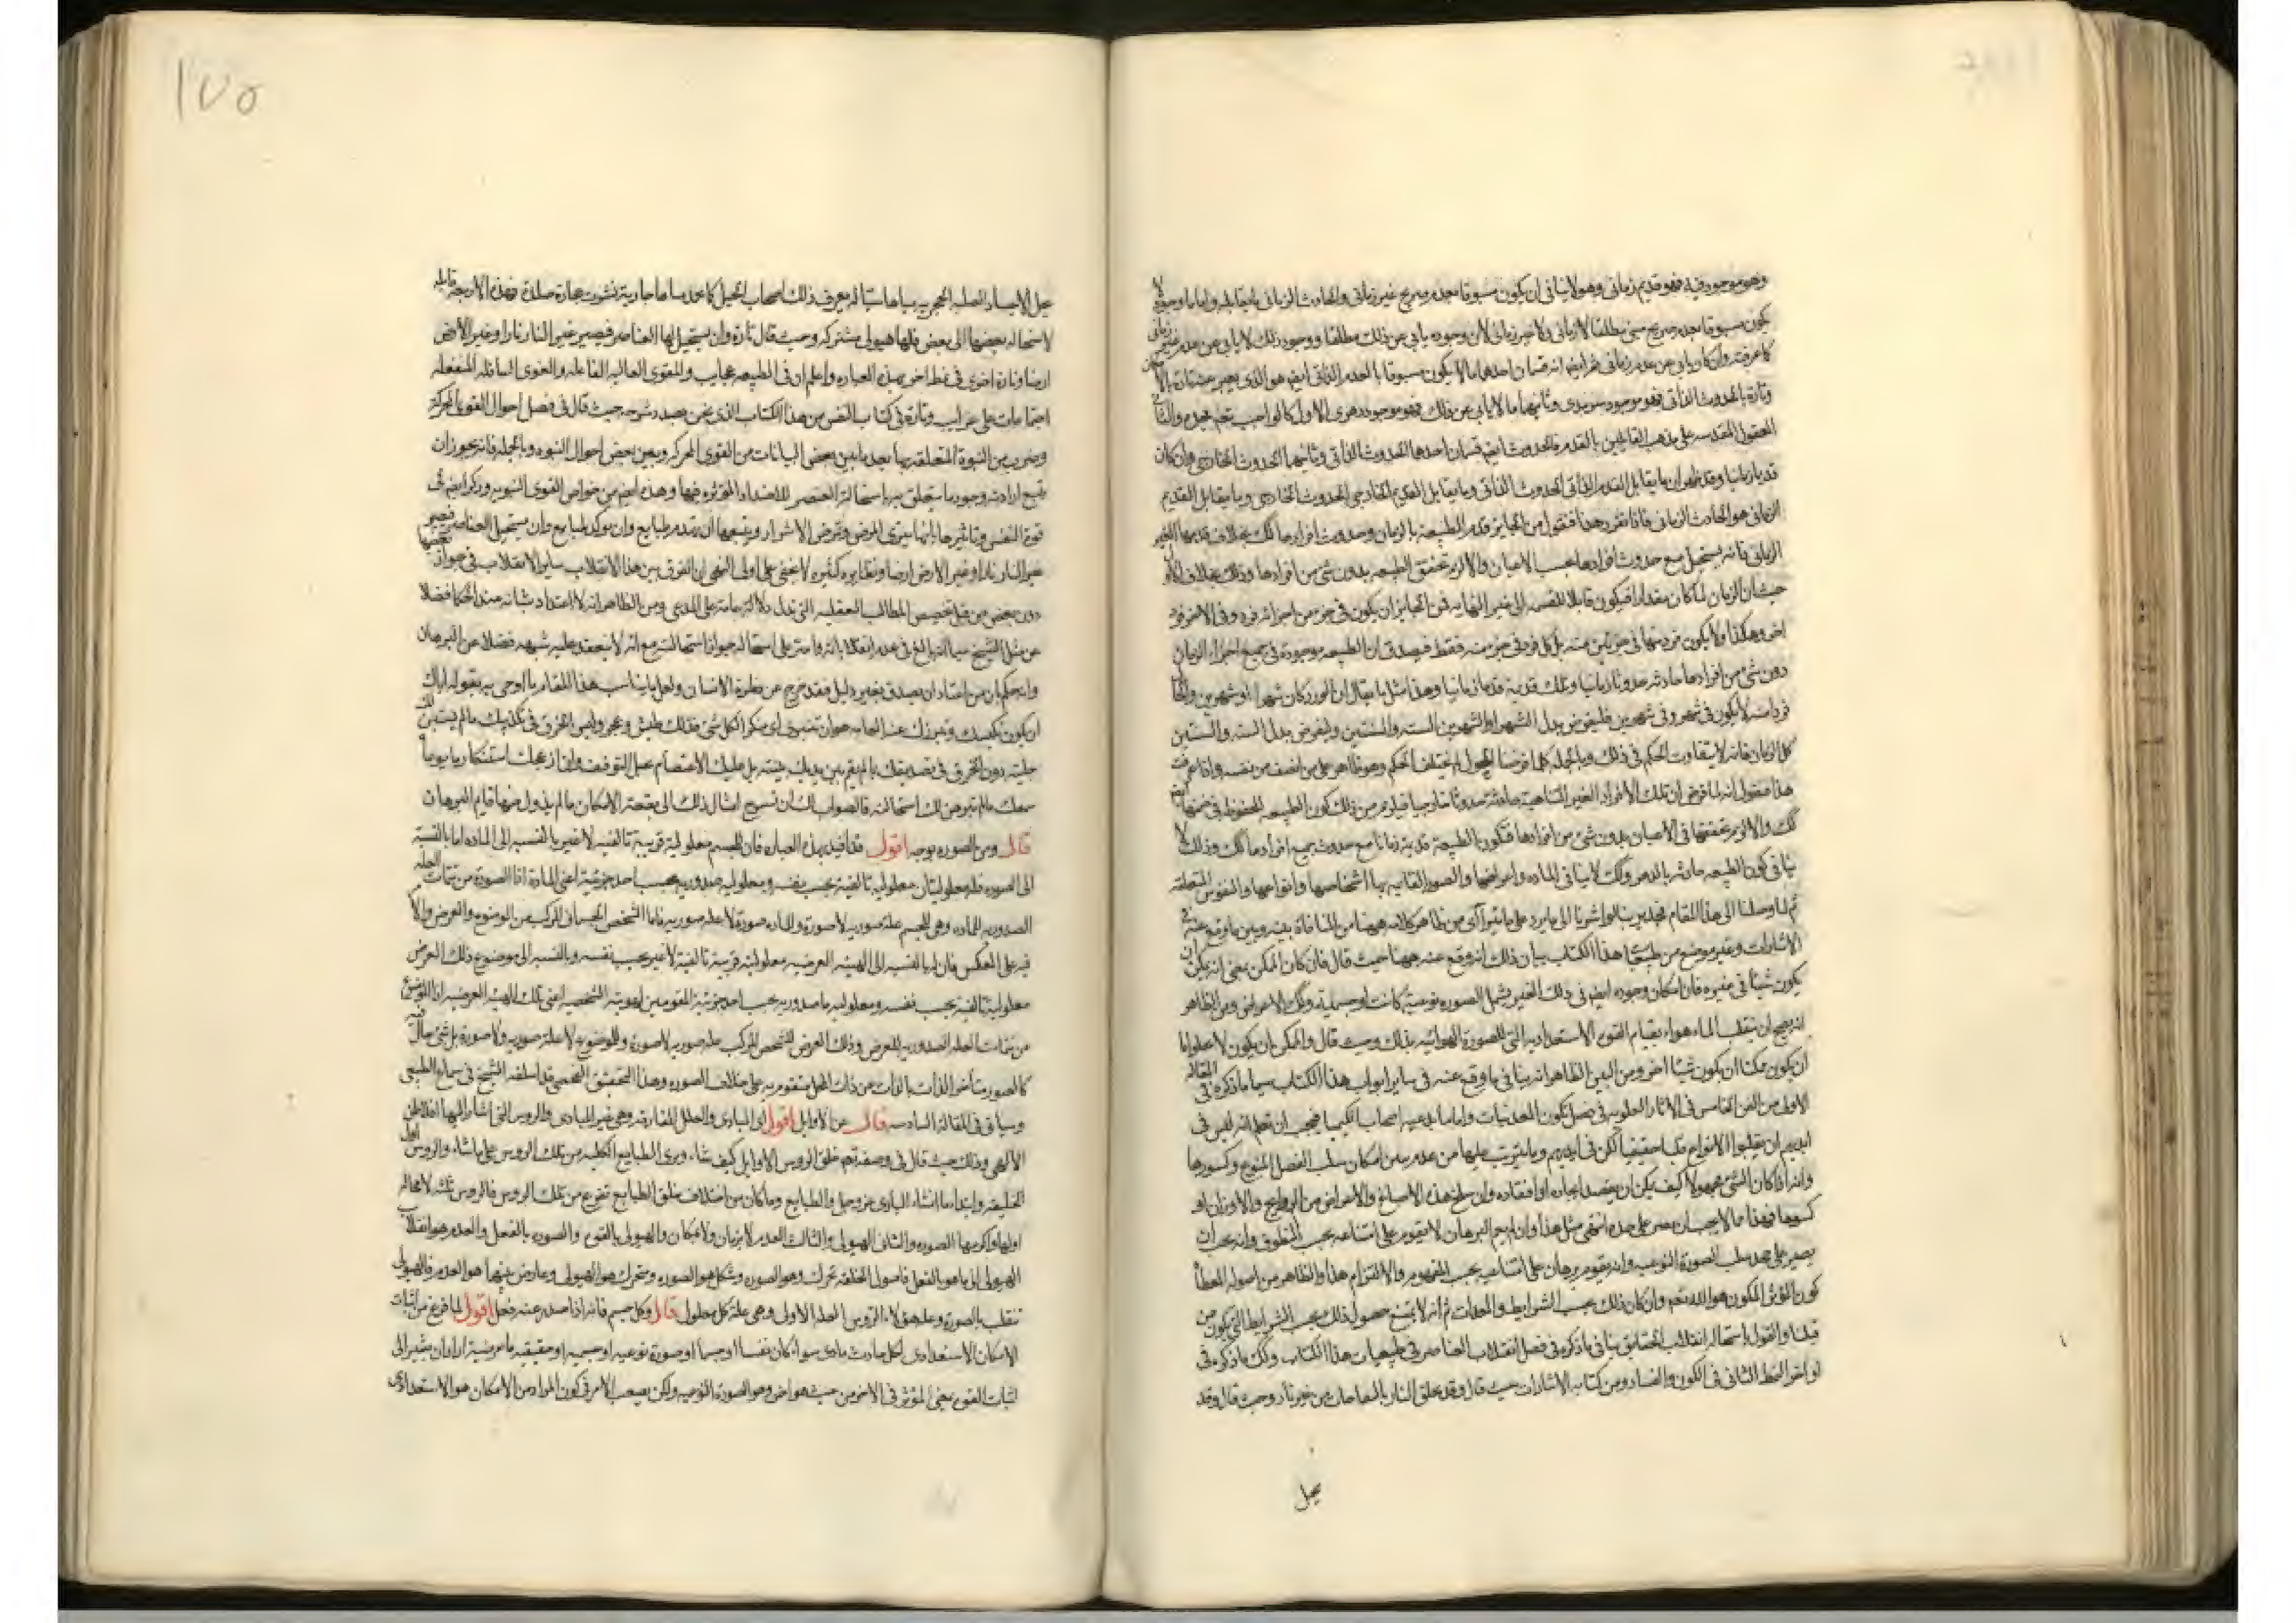 وهو موجود فيه فهو قديم زماني وهو لا ينافي ان يكون مسبوقا بعدم صريح غير زماني والحادث الزماني يقابله واما ما وجوده لا
يكون مسبوقا بعدم صريح مطلقا لا زماني ولا غير زماني لان وجوده يابى عن ذلك مطلقا ووجود ذلك لا يابى عن عدم غير زماني
كما عرفته وان كان يابى عن عدم زماني ثم ايضا انه قسمان احدهما ما لا يكون مسبوقا بالعدم الذاتي ايضا هو الذي يعبر عنه تارة
وتارة بالحدوث الذاتي فهو موجود سرمدي وثانيهما ما لا يابى عن ذلك فهو موجود دهري الاول كالواجب تعم مجده والثاني
العقول المقدسه على مذهب القائلين بالقدم فالحدوث ايضا قسمان احدهما الحدوث الذاتي وثانيهما الحدوث الخارجي وان كان
قد ظهر ان ما يقابل القدم الذاتي الحدوث الذاتي وما يقابل القديم الخارجي الحدوث الخارجي وما يقابل القديم
الزماني هو الحادث الزماني فاذا تقرر هذا فنقول من الجايز قدم الطبيعه بالزمان وحدوث افرادها كك بخلاف قدمها الغير
الزماني فانه يستحيل مع حدوث افرادها بحسب الاعيان والا لزم تحقق الطبيعه بدون شئ من افرادها وذلك بخلاف الاول
حيث ان الزمان لما كان مقدارا فيكون قابلا للقسمه الى غير النهايه فمن الجايز ان يكون في جزء من اجزائه فرد وفي الاخر فرد
اخر وهكذا ولا يكون فرد منها في جزئين منه بل كل فرد في جزء منه فقط فيصدق ان الطبيعه موجودة في جميع اجزاء الزمان
دون شئ من افرادها حادثه حدوثا زمانيا وتلك قديمة قدما زمانيا وهذا مثل ما يقال ان الورد كان شهرا او شهرين والحال
فرد منه لا يكون في شهر وفي شهرين فليفرض بدل الشهر او الشهرين السنه والسنتين وليفرض بدل السنه والسنتين
كل الزمان فانه لا يتفاوت الحكم في ذلك وبالجمله كلما فرضنا المحمول لم يختلف الحكم وهو ظاهر على من انصف من نفسه واذا عرفت
هذا فنقول انه لما فرض ان تلك الافراد الغير المتناهية حادثة حدوثا خارجيا فيلزم من ذلك كون الطبيعه المحفوظه في ضمنها ايضا
كك والا لزم تحققها في الاعيان بدون شئ من افرادها فتكون الطبيعة قديمة زمانا مع حدوث جميع افرادها كك وذلك لا
ينافي كون الطبيعه حادثه بالدهر وكك لا ينافي الماده واعراضها والصور القايمه بها اشخاصها وانواعها والنفوس المتعلقه
ثم لما وصلنا الى هذا المقام فجدير بنا لو اشرنا الى ما يرد على ما يتراآى من ظاهر كلامه ههنا من المنافاة بينه وبين ما وقع عنه في
الاشارات وغير موضع من طبيعيات هذا الكتاب بيان ذلك انه وقع عنه ههنا حيث قال فان كان الممكن بمعنى انه يمكن ان
يكون شيئا في غيره فان امكان وجوده ايضا في ذلك الغير يشمل الصوره نوعية كانت او جسمية وكك الاعراض ومن الظاهر
انه يصح ان ينقلب الماء هواء بقيام القوه الاستعداديه التي للصورة الهوائيه بذلك وحيث قال والممكن ان يكون لا
ان يكون ممكنا ان يكون شيئا اخر ومن البين الظاهر انه ينافي ما وقع عنه في ساير ابواب هذا الكتاب سيما ما ذكره في المقالة
الاولى من الفن الخامس في الاثار العلويه في فصل تكون المعدنيات واما ما يدعيه اصحاب الكيميا فيجب ان تعلم انه ليس في
ايديهم ان يقلبوا الانواع قلبا حقيقيا لكن في ايديهم وما يترتب عليها من عدم بين امكان سلب الفصل المنوع وكسوها
وانه اذا كان الشئ مجهولا كيف يمكن ان يقصد ايجاده او افقاده وان سلخ هذه الاصباغ والاعراض من الروايح والاوزان او
كسوها فهذا ما لا يجب ان يصر على جحده انتهى مثل هذا وان لم يقم البرهان لا يقوم على امتناعه بحسب المنطوق وانه يجب ان
يصير على جحد سلب الصورة النوعيه وانه يقوم برهان على امتناعه بحسب المفهوم والالتزام هذا والظاهر من اصوله المعطاة
كون المؤثر المكون هو الله تعم وان كان ذلك بحسب الشرايط والمعدات ثم انه لا يمتنع حصول ذلك بحسب الشرايط التي يكون من
قبلنا والقول باستحالة انقلاب الحقايق ينافي ما ذكره في فصل انقلاب العناصر في طبيعيات هذا الكتاب وكك ما ذكره في
اواخر النمط الثاني في الكون والفساد من كتاب الاشارات حيث قال وقد يخلق النار بالنفاخات من غير نار وحيث قال وقد
يحل
١٧٥
يحل الاجساد الصلبه الحجريه مياها سيالة يعرف ذلك اصحاب الحيل كما قد مياها جارية تشرب حجارة صلدة فهذه الاربعه قابله
لاستحاله بعضها الى بعض فلها هيولى مشتركه وحيث قال تارة وان يستحيل لها العناصر فيصير غير النار نارا وغير الارض
ارضا وتارة اخرى في نمط اخر بهذه العباره واعلم ان في الطبيعه عجايب وللقوى العاليه الفاعله والقوى السافله المنفعله
اجتماعات على غرايب وتارة في كتاب النفس من هذا الكتاب الذي نحن بصدد شرحه حيث قال في فصل احوال القوى المحركة
وضرب من النبوة المتعلقه بها بعد ما بين بعض البيانات من القوى المحركه وبعض احوال النبوه وبالجمله فانه يجوز ان
يتبع ارادته وجود ما يتعلق به باستحالة العنصر للاضداد المؤثره فيها وهذه ايضا من خواص القوى النبويه وذكر ايضا في
قوة النفس وتاثيرها بانها يبرئ المرضى وتمرض الاشرار ويتبعها ان تهدم طبايع وان يوكد طبايع وان يستحيل العناصر فيصير
غير النار نارا وغير الارض ارضا ونظايره كثيره لا يخفى على اولي النهى ان الفرق بين هذا الانقلاب وساير الانقلاب في جواز بعضها
دون بعض من قبل تخصيص المطالب العقليه التي تدل دلالة عامة على المدعى ومن الظاهر انه لا اعتداد بشانه عند الحكما فضلا
عن مثل الشيخ سيما انه بالغ في عدم انعقاد برهان على استحاله جواز استحالته مع انه لا ينعقد عليه شبهه فضلا عن البرهان
وانه حكم بان من اعتاد ان يصدق بغير دليل فقد خرج عن فطرة الانسان ولعل ما يناسب هذا المقام ما اوصى به بقوله اياك
ان يكون تكيسك وتبرزك عن العامه هو ان تنبري منكرا لكل شئ فذلك طيش وعجز وليس الخرق في تكذيبك ما لم يستبن لك
جليته دون الخرق في تصديقك ما لم يقم بين يديك بينته بل عليك الاعتصام بحبل التوقف وان ازعجك استنكار ما يوعاه
سمعك ما لم يتبرهن لك استحالته فالصواب لك ان تسرح امثال ذلك الى بقعة الامكان ما لم يذدك عنها قايم البرهان
قال ومن الصوره بوجه اقول قد افيد بهذه العباره فان للجسم معلولية قريبة تالفيه لا غير بالنسبه الى الماده اما بالنسبة
الى الصوره فله معلوليتان معلولية تالفية بحسب نفسه ومعلوليه صدوريه بحسب احد جزئيه اعني المادة اذا الصورة من تتمات العله
الصدوريه للماده وهي للجسم علة صوريه لا صورة وللماده صورة لا علة صوريه فاما الشخص الجسماني المركب من الموضوع والعرض والامر
فيه على العكس فان له بالنسبه الى الهيئه العرضيه معلولية قريبة تالفية لا غير بحسب نفسه وبالنسبه الى موضوع ذلك العرض
معلولية تالفية بحسب نفسه ومعلولية ما صدوريه بحسب احد جزئيه المقومين لهويته الشخصيه اعني تلك الهيئه العرضيه اذا الموضوع
من تتمات العله الصدوريه للعرض وذلك العرض للشخص المركب علة صوريه لا صورة وللموضوع لا علة صوريه ولا صورة بل شئ حال فيه
كالصوره متاخر الذات بالذات عن ذات المحل متقوم به على خلاف الصوره وهذا التحقيق الفحصي قد اسلفه الشيخ في سماع الطبيعي
وسياتي في المقالة السادسه قال عن الاوايل اقول اي المبادى والعلل المفارقه وهي غير المبادى والروس التي اشار اليها افلاطن
الالهي وذلك حيث قال في وصفه تعم خلق الروس الاوايل كيف شاء وبرى الطبايع الكليه من تلك الروس على ما شاء والروس اول
الخليقه وابتداء ما انشاء البارى عز وجل والطبايع وما كان من اختلاف خلق الطبايع تفرع من تلك الروس فالروس ثلثه لا محاله
اولها واكرمها الصوره والثاني الهيولى والثالث العدم لا بزمان ولا بمكان والهيولى بالقوه والصوره بالفعل والعدم هو انقلاب
الهيولى الى ما هو بالفعل فاصول الخلقه تحرك وهو الصوره وشكل هو الصوره ومتحرك هو الهيولى وعارض بينهما هو العدم فالهيولى
تنقلب بالصورة وعله هؤلاء الروس العله الاولى وهي علة كل معلول قال وكل جسم فانه اذا صدر عنه فعل اقول لما فرغ من اثبات
الامكان الاستعدادى لكل حادث مادى سواء كان نفسا او جسما او صورة نوعيه او جسميه او حقيقيه ما عرضية اراد ان يشير الى
اثبات القوه بمعنى المؤثر في الاخر من حيث هو اخر وهو الصورة النوعيه ولكن يصعب الامر في كون المراد من الامكان هو الاستعدادى